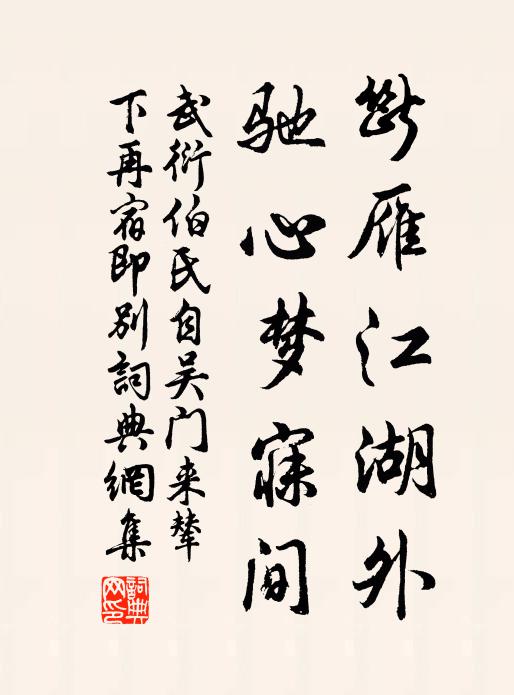 断雁江湖外
驰心梦寐间
武衍伯氏自吴门来辇
下再宿即别詞典網集
詞典